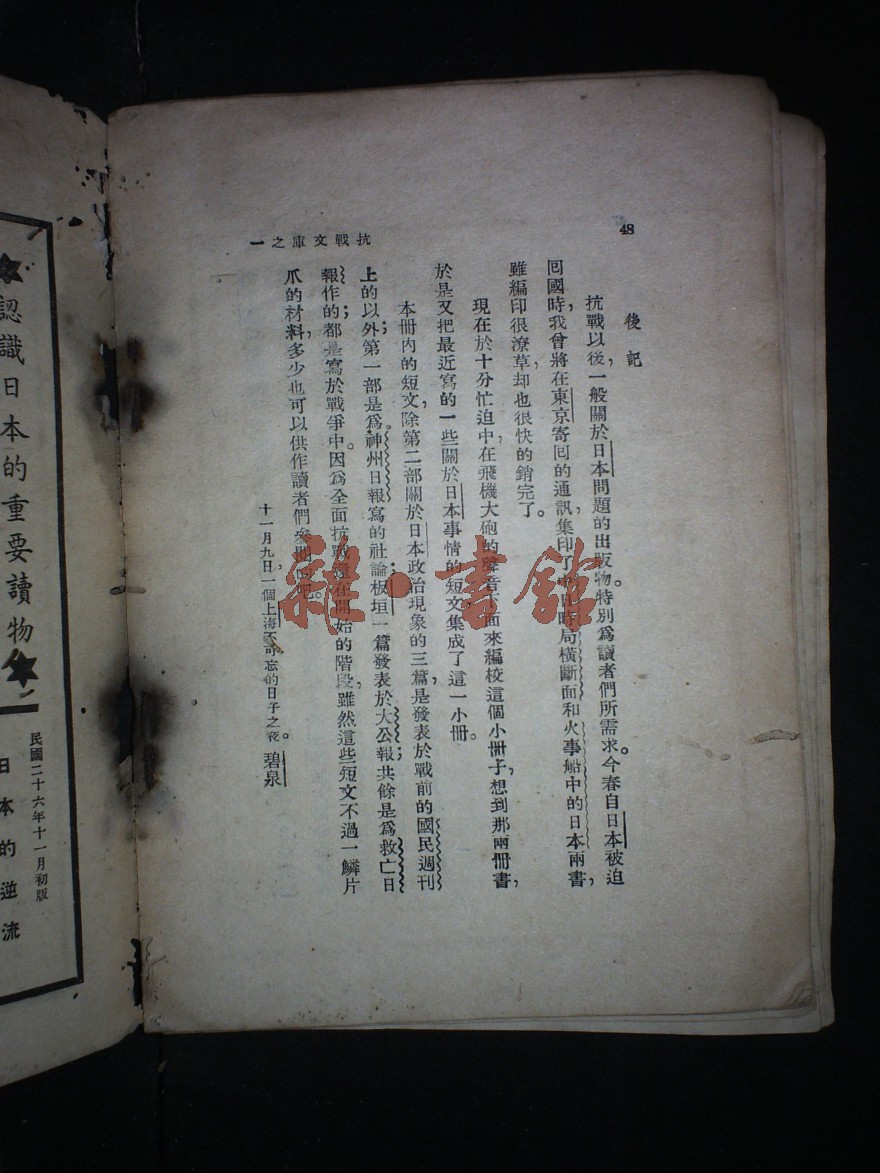 48
抗戰文庫之一
後記
抗戰以後，一般關於日本問題的出版物。特別爲讀者們所需求。今春自日本被迫
囘國時，我曾將在東京寄囘的通訊，集印了中日時局橫斷面和火車船中的日本兩書，
雖編印很潦草，却也很快的銷完了。
現在於十分忙迫中，在飛機大砲的聲音下面來編校這個小冊子，想到那兩冊書，
於是又把最近寫的一些關於日本事情的短文集成了這一小冊。
本冊內的短文，除第二部關於日本政治現象的三篇，是發表於戰前的國民週刊
上的以外；第一部是爲神州日報寫的社論；板垣一篇發表於大公報；其餘是爲救亡日
報作的；都是寫於戰爭中。因爲全面抗戰還在開始的階段，雖然這些短文不過一鱗片
爪的材料，多少也可以供作讀者們參閱吧。
十一月九日一個上海不可忘的日子之夜。 碧泉
認識日本的重要讀物
民國二十六年十一月初版
日本的逆流
雜·書館